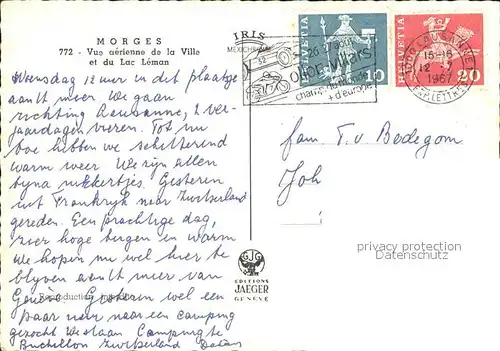 MORGES
772 - Vue aérienne de la Ville
et du Lac Léman
IRIS
MEXICHROME
HELVETIA
10
HELVETIA
20
1000 LAUSANNE 1
15-16
12.-7
1967
OLLON-Villars
champ. du monde
+ d'europe
Woensdag 12 uur in dit plaatsje
aan het meer We gaan
richting Lausanne, 2 ver-
jaardagen vieren. Tot nu
toe hebben we schitterend
warm weer We zijn allen
byna nikkertjes. Gisteren
uit Frankryk naar Zwitserland
gereden. Een prachtige dag,
zeer hoge bergen en warm
We hopen nu wel hier te
blyven aan het meer van
Genève Gisteren wel een
paar uur naar een camping
gezocht We staan Camping te
Buchillon Zwitserland
fam. T. v. Bedegom
Joh
Reproduction interdite
EDITIONS
JAEGER
GENÈVE
privacy protection
Datenschutz